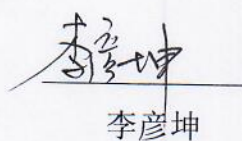 李彦坤
李彦坤